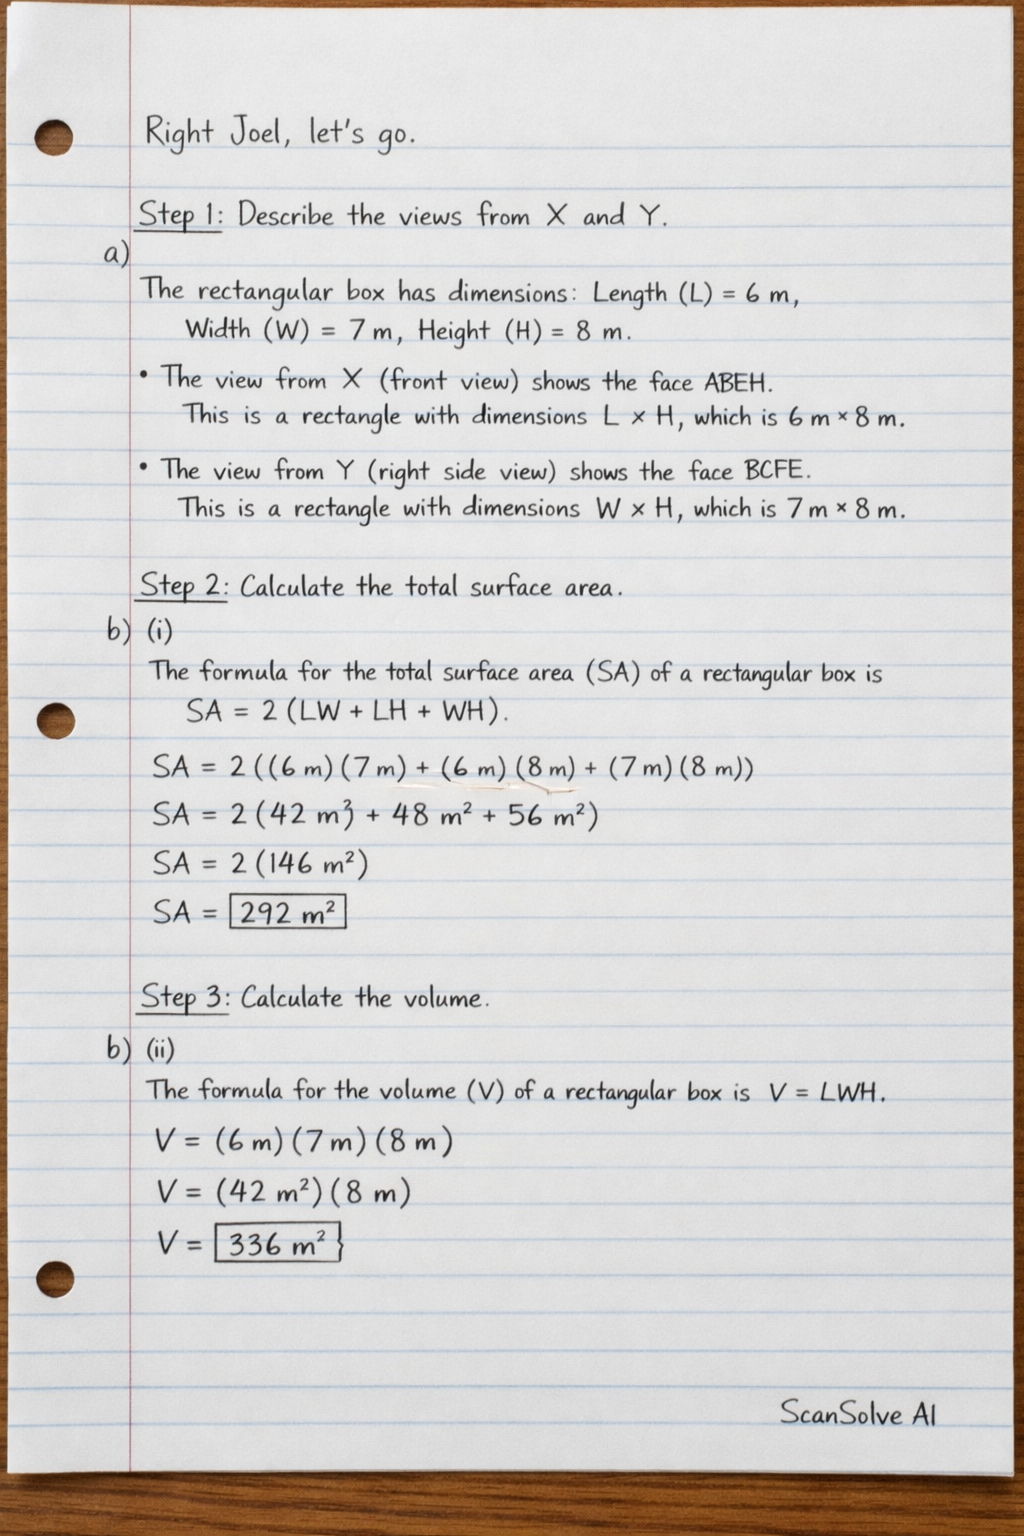 Right Joel, let's go.
Step 1: Describe the views from X and Y.
a)
The rectangular box has dimensions: Length (L) = 6 m,
Width (W) = 7 m, Height (H) = 8 m.
• The view from X (front view) shows the face ABEH.
This is a rectangle with dimensions L × H, which is 6 m × 8 m.
• The view from Y (right side view) shows the face BCFE.
This is a rectangle with dimensions W × H, which is 7 m × 8 m.
Step 2: Calculate the total surface area.
b) (i)
The formula for the total surface area (SA) of a rectangular box is
SA = 2 (LW + LH + WH).
SA = 2 ((6 m) (7 m) + (6 m) (8 m) + (7 m) (8 m))
SA = 2 (42 m³ + 48 m² + 56 m²)
SA = 2 (146 m²)
SA = 292 m²
Step 3: Calculate the volume.
b) (ii)
The formula for the volume (V) of a rectangular box is V = LWH.
V = (6 m) (7 m) (8 m)
V = (42 m²) (8 m)
V = 336 m²
ScanSolve AI